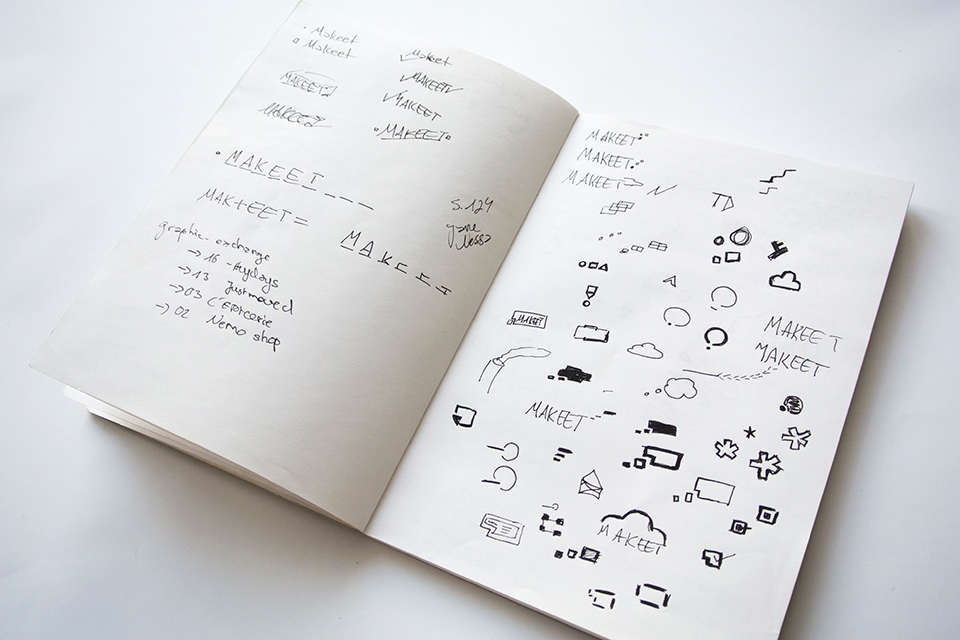 Makeet
Makeet
MAKEET
MAKEET
Makeet
MAKEET
MAKEET
MAKEET
MAKEET
MAK+EET=
MAKE
S. 124
graphic-exchange
→ 16 - Heydays
→ 13 Justmoved
→ 03
→ 02 Nemo shop
MAKEET
MAKEET
MAKEET
MAKEET
MAKEET
MAKEET
MAKEET
MAKEET